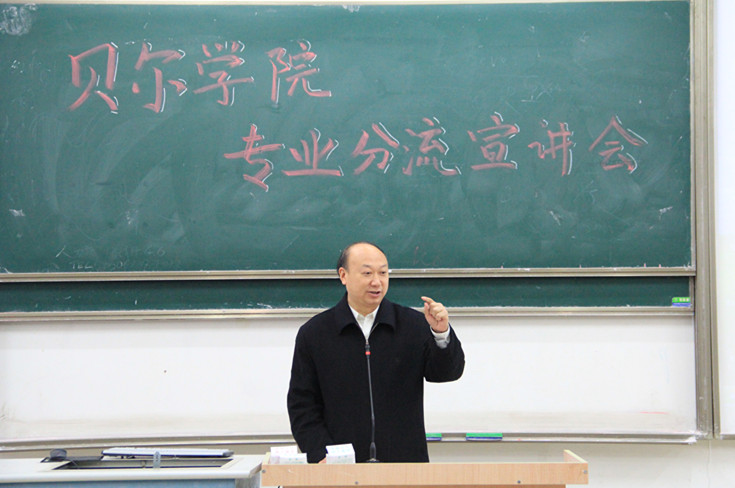 贝尔学院
专业分流宣讲会